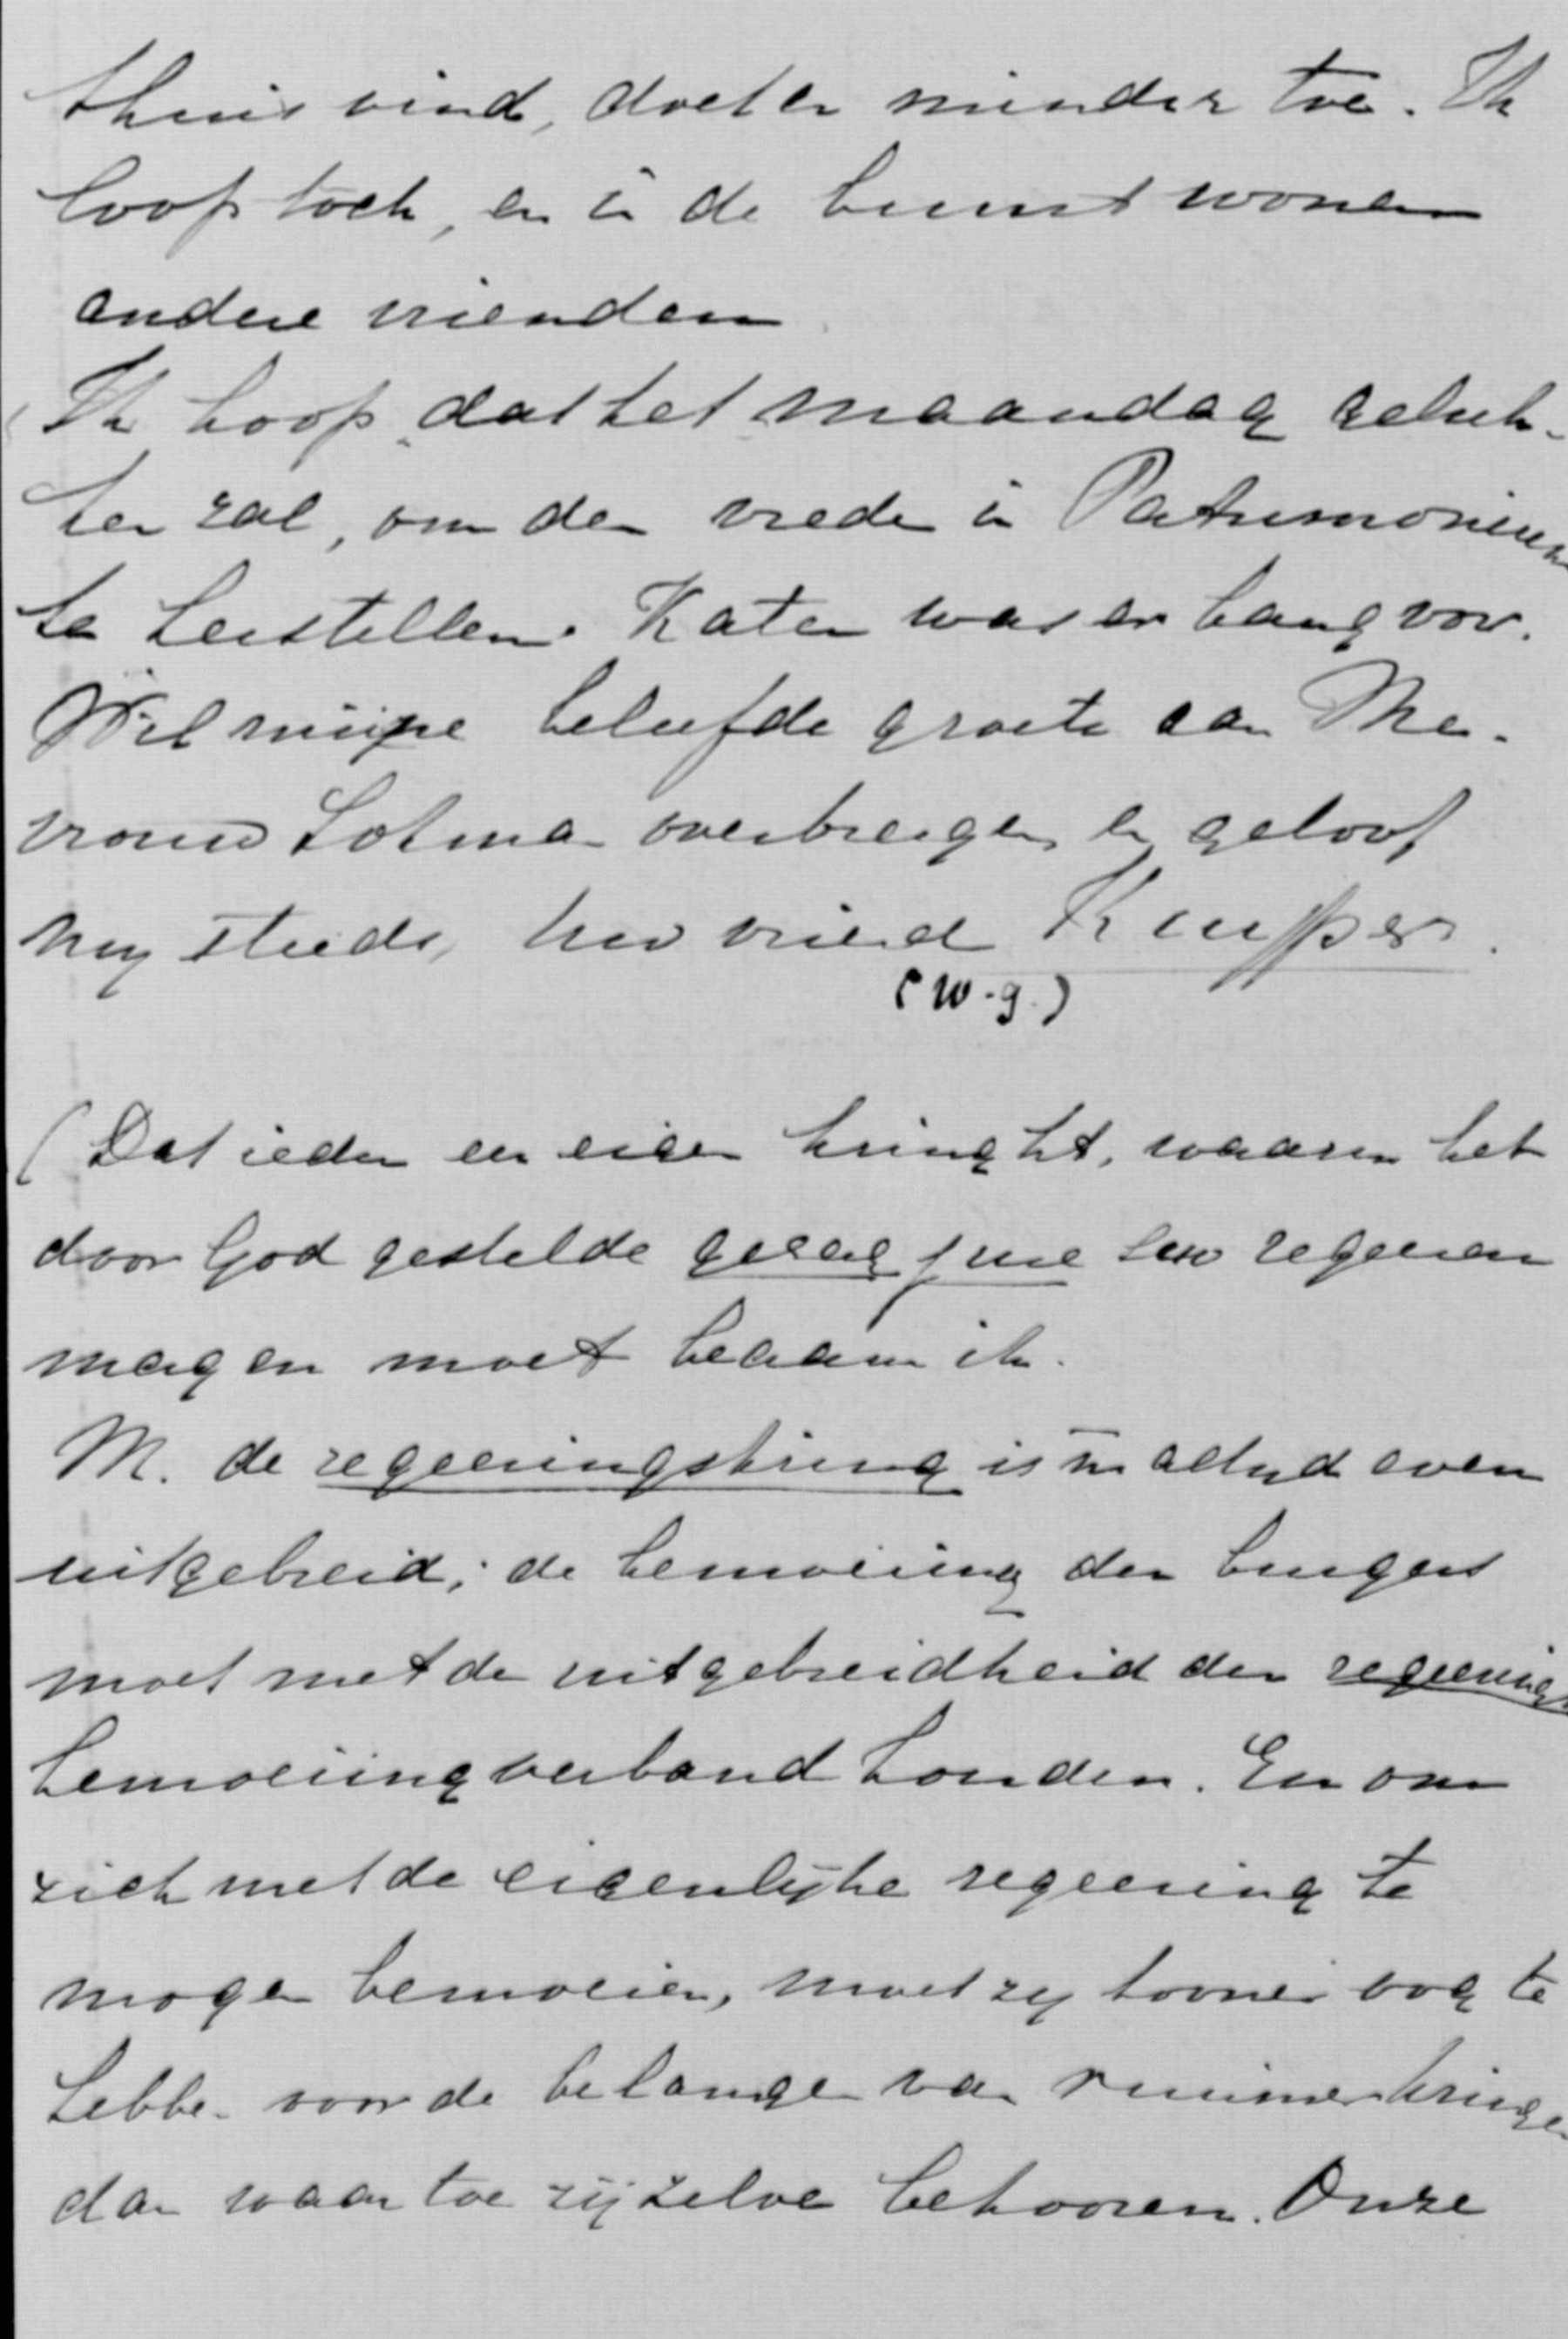 thuis vind, doet er minder toe. Ik
loop toch, en in de buurt wonen
andere vrienden
Ik hoop dat het maandag geluk-
ken zal, om den vrede in Patrimonium
te herstellen. Kater was er bang voor.
Wil mijne beleefde groete aan Me-
vrouw Lohman overbrengen en geloof
my steeds, uw vriend Kuyper.
(w.g.)
(Dat ieder een eigen kring ht, waarin het
door God gestelde gezag jure suo regeeren
mag en moet beaam ik.
M. de regeeringskring is nt altyd even
uitgebreid; de bemoeiing der burgers
moet met de uitgebreidheid der regeerings
bemoeiing verband houden. En om
zich met de eigenlyke regeering te
mogen bemoeien, moet zy toonen oog te
hebben voor de belangen van ruimer kringen
dan waartoe zij zelve behooren. Onze